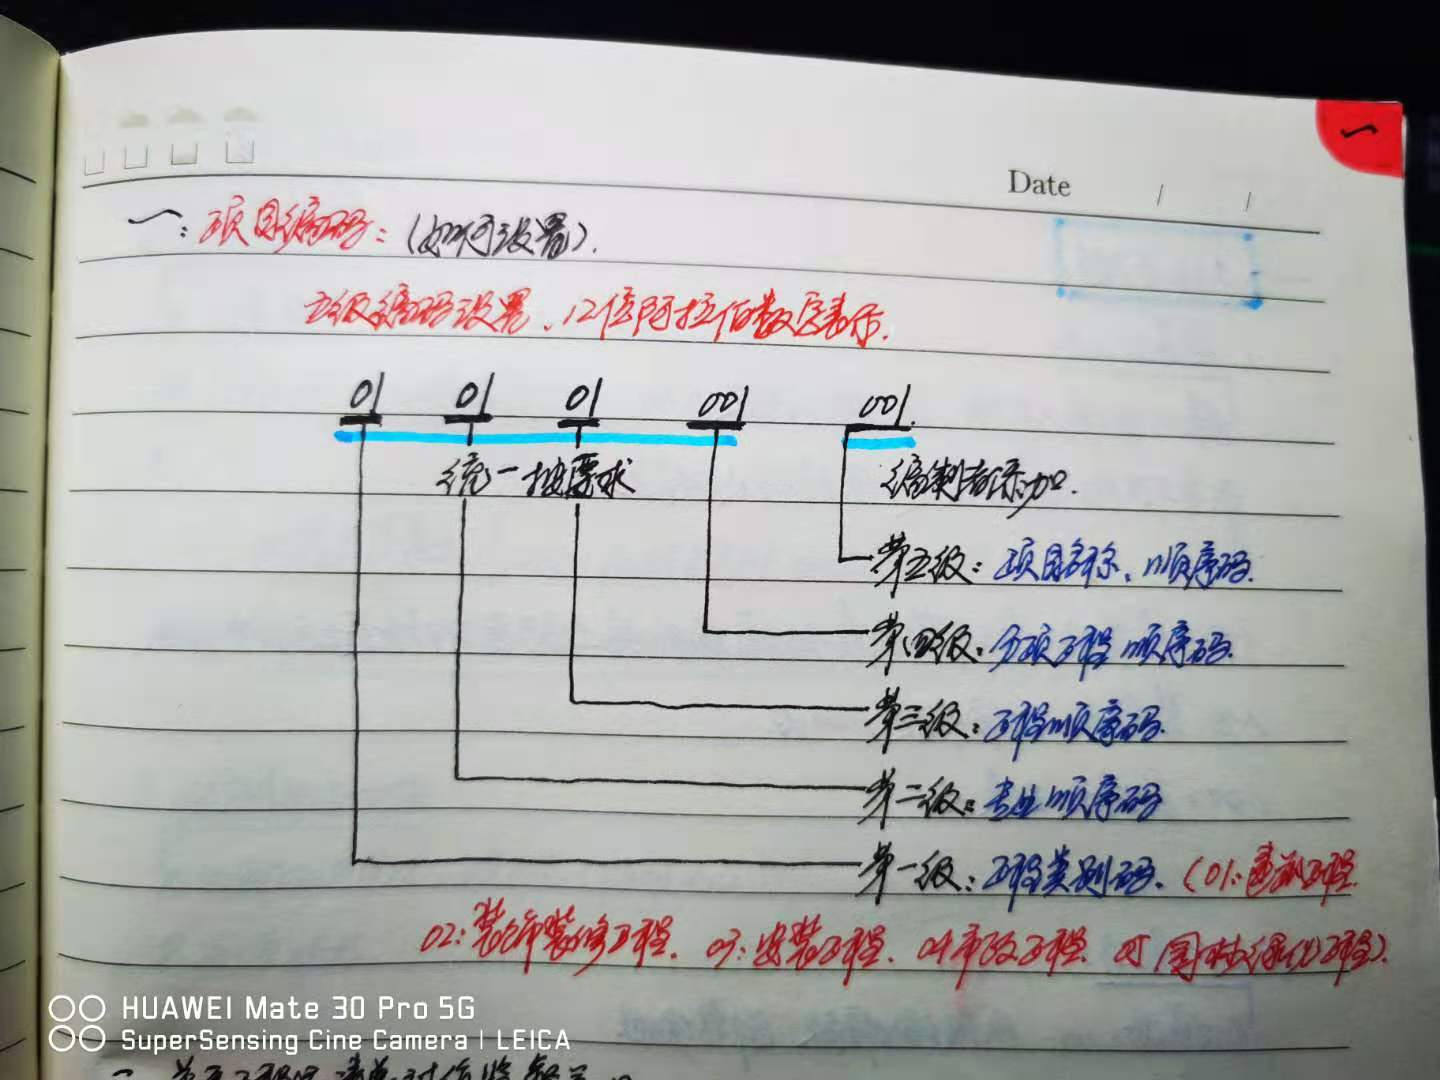 一
Date / /
一：项目编码：（如何设置）.
五级编码设置、12位阿拉伯数字表示.
01 01 01 001 001.
统一按要求 编制者添加.
第五级：项目名称、顺序码.
第四级：分项工程顺序码.
第三级：工程顺序码.
第二级：专业顺序码
第一级：工程类别码.（01：建筑工程.
02：装饰装修工程. 03：安装工程. 04市政工程. 05 园林绿化工程）.
HUAWEI Mate 30 Pro 5G
SuperSensing Cine Camera | LEICA